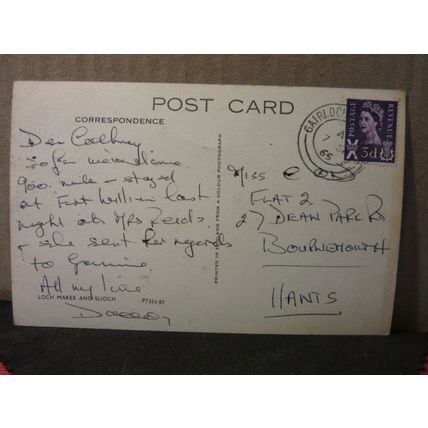 POST CARD
CORRESPONDENCE
GAIRLOCH
7
65
POSTAGE
REVENUE
3d
Dear
So far we've done
900 miles - stayed
at Fort William last
night at Mrs Reids.
& she sent her regards
to
All my love
Daddy
MISS C
FLAT 2
27 DEAN PARK RD
BOURNEMOUTH
HANTS
LOCH MAREE AND SLIOCH
PT35489
PRINTED IN SCOTLAND FROM A COLOUR PHOTOGRAPH